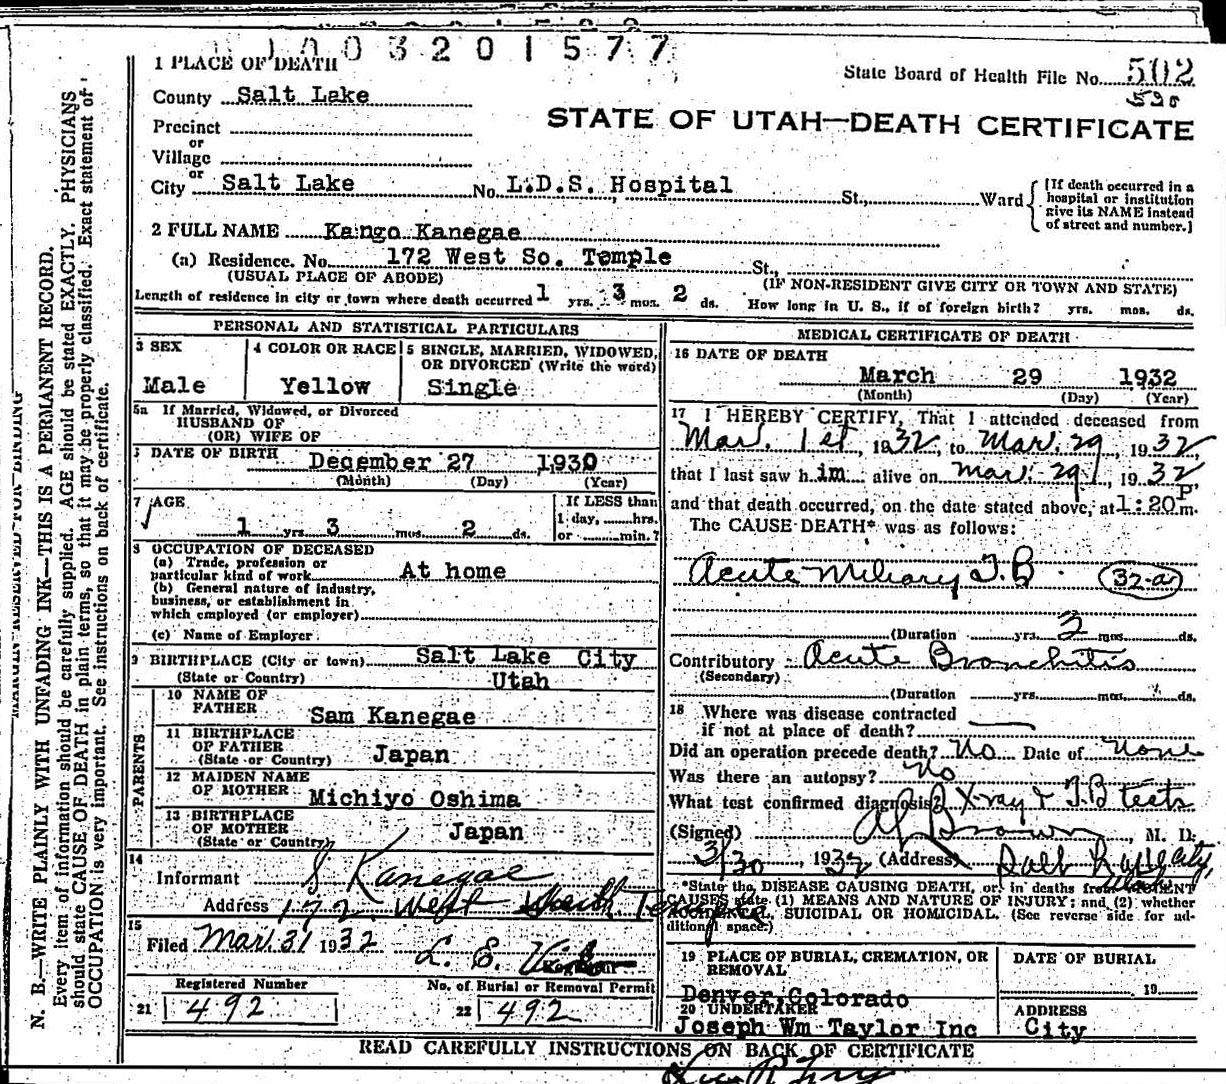 1003201577
State Board of Health File No. 502
530
STATE OF UTAH—DEATH CERTIFICATE
1 PLACE OF DEATH
County Salt Lake
Precinct
or
Village
or
City Salt Lake No. L.D.S. Hospital St., Ward
[If death occurred in a hospital or institution give its NAME instead of street and number.]
2 FULL NAME Kango Kanegae
(a) Residence. No. 172 West So. Temple St.,
(USUAL PLACE OF ABODE) (IF NON-RESIDENT GIVE CITY OR TOWN AND STATE)
Length of residence in city or town where death occurred 1 yrs. 3 mos. 2 ds. How long in U. S., if of foreign birth? yrs. mos. ds.
PERSONAL AND STATISTICAL PARTICULARS
3 SEX
Male
4 COLOR OR RACE
Yellow
5 SINGLE, MARRIED, WIDOWED,
OR DIVORCED (Write the word)
Single
5a If Married, Widowed, or Divorced
HUSBAND OF
(OR) WIFE OF
DATE OF BIRTH December 27 1930
(Month) (Day) (Year)
7 AGE
1 yrs 3 mos. 2 ds.
If LESS than
1 day, hrs.
or min.?
8 OCCUPATION OF DECEASED
(a) Trade, profession or
particular kind of work At home
(b) General nature of industry,
business, or establishment in
which employed (or employer)
(c) Name of Employer
9 BIRTHPLACE (City or town) Salt Lake City
(State or Country) Utah
PARENTS
10 NAME OF
FATHER Sam Kanegae
11 BIRTHPLACE
OF FATHER
(State or Country) Japan
12 MAIDEN NAME
OF MOTHER Michiyo Oshima
13 BIRTHPLACE
OF MOTHER
(State or Country) Japan
14
Informant S Kanegae
Address 172 West South Temple
15
Filed Mar. 31 1932 L. E.
Registered Number
21 492
No. of Burial or Removal Permit
22 492
MEDICAL CERTIFICATE OF DEATH
16 DATE OF DEATH
March 29 1932
(Month) (Day) (Year)
17 I HEREBY CERTIFY, That I attended deceased from
Mar. 1st, 1932, to Mar. 29, 1932
that I last saw him alive on Mar. 29, 1932
and that death occurred, on the date stated above, at 1:20 P. m.
The CAUSE DEATH* was as follows:
Acute Miliary T.B. 32-a
(Duration yrs. 2 mos. ds.
Contributory Acute Bronchitis
(Secondary)
(Duration yrs. mos. ds.
18 Where was disease contracted
if not at place of death?
Did an operation precede death? No Date of None
Was there an autopsy? No
What test confirmed diagnosis? X-ray & T.B tests
(Signed) Brown, M. D.
3/30, 1932 (Address) Salt Lake City,
*State the DISEASE CAUSING DEATH, or in deaths from VIOLENT
CAUSES state (1) MEANS AND NATURE OF INJURY; and (2) whether
ACCIDENTAL, SUICIDAL OR HOMICIDAL. (See reverse side for additional space.)
19 PLACE OF BURIAL, CREMATION, OR
REMOVAL
Denver, Colorado
DATE OF BURIAL
19
20 UNDERTAKER
Joseph Wm Taylor Inc
ADDRESS
City
READ CAREFULLY INSTRUCTIONS ON BACK OF CERTIFICATE
MARGIN RESERVED FOR BINDING
N. B.—WRITE PLAINLY WITH UNFADING INK—THIS IS A PERMANENT RECORD.
Every item of information should be carefully supplied. AGE should be stated EXACTLY. PHYSICIANS
should state CAUSE OF DEATH in plain terms, so that it may be properly classified. Exact statement of
OCCUPATION is very important. See instructions on back of certificate.